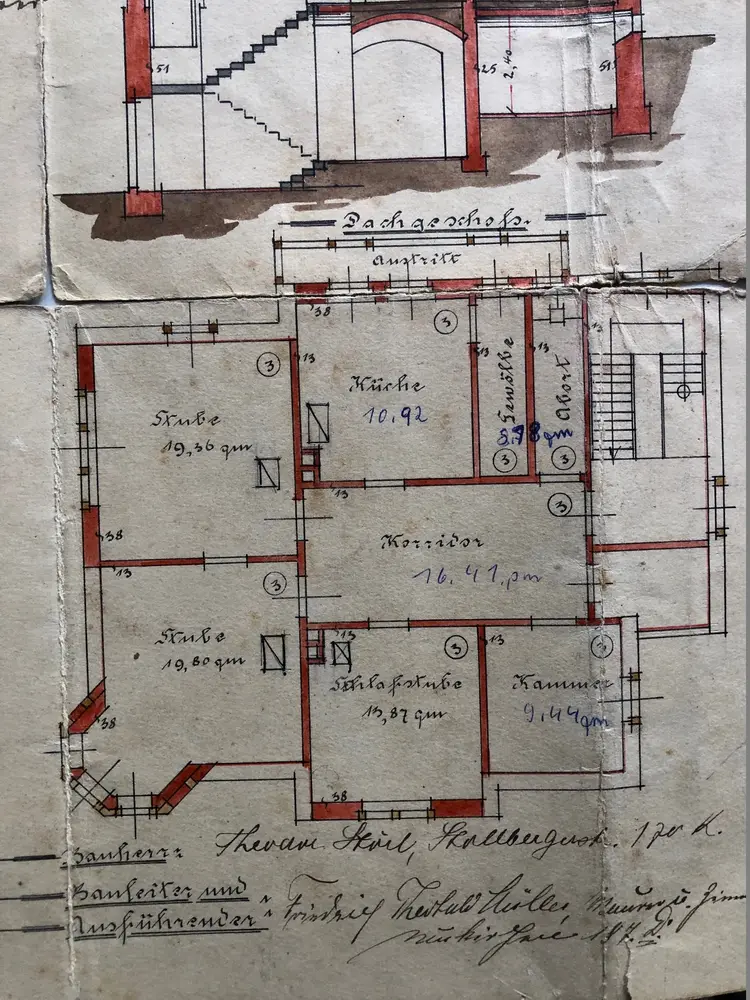 51
25
2,40
51
Dachgeschoß.
Austritt
38
3
13
3
13
13
13
Stube
19,36 qm
Küche
10,92
Gewölbe
Abort
qm
3
3
13
3
38
13
Korridor
16,41 qm
3
13
3
13
3
Stube
19,80 qm
Schlafstube
13,87 qm
Kammer
9,44 qm
38
38
Bauherr:
Theodor
Bauleiter und
Ausführender:
Friedrich Müller, Maurer u.